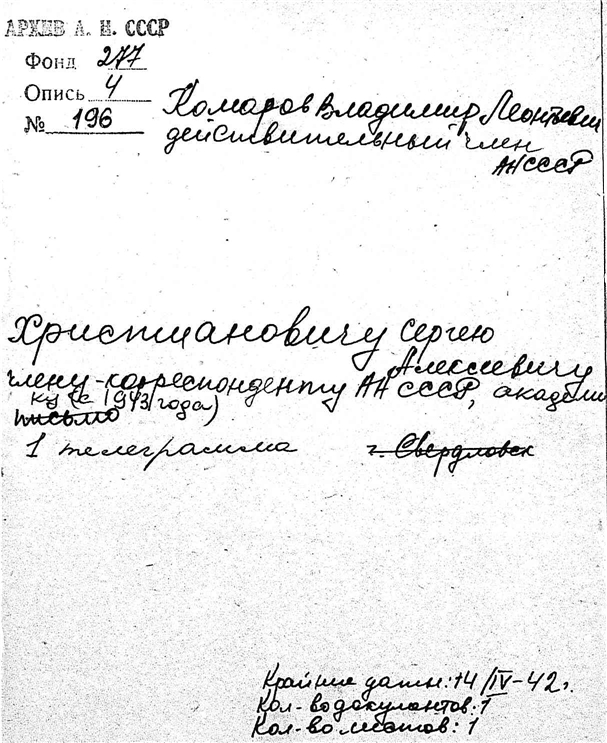 АРХИВ А. Н. СССР
Фонд 277
Опись 4
№ 196
Комаров Владимир Леонтьевич
действительный член
АН СССР
Христиановичу Сергею
Алексеевичу
члену-корреспонденту АН СССР, академи
ку (с 1943 года)
письмо
1 телеграмма г. Свердловск
Крайние даты: 14/IV-42г.
Кол-во документов: 1
Кол-во листов: 1